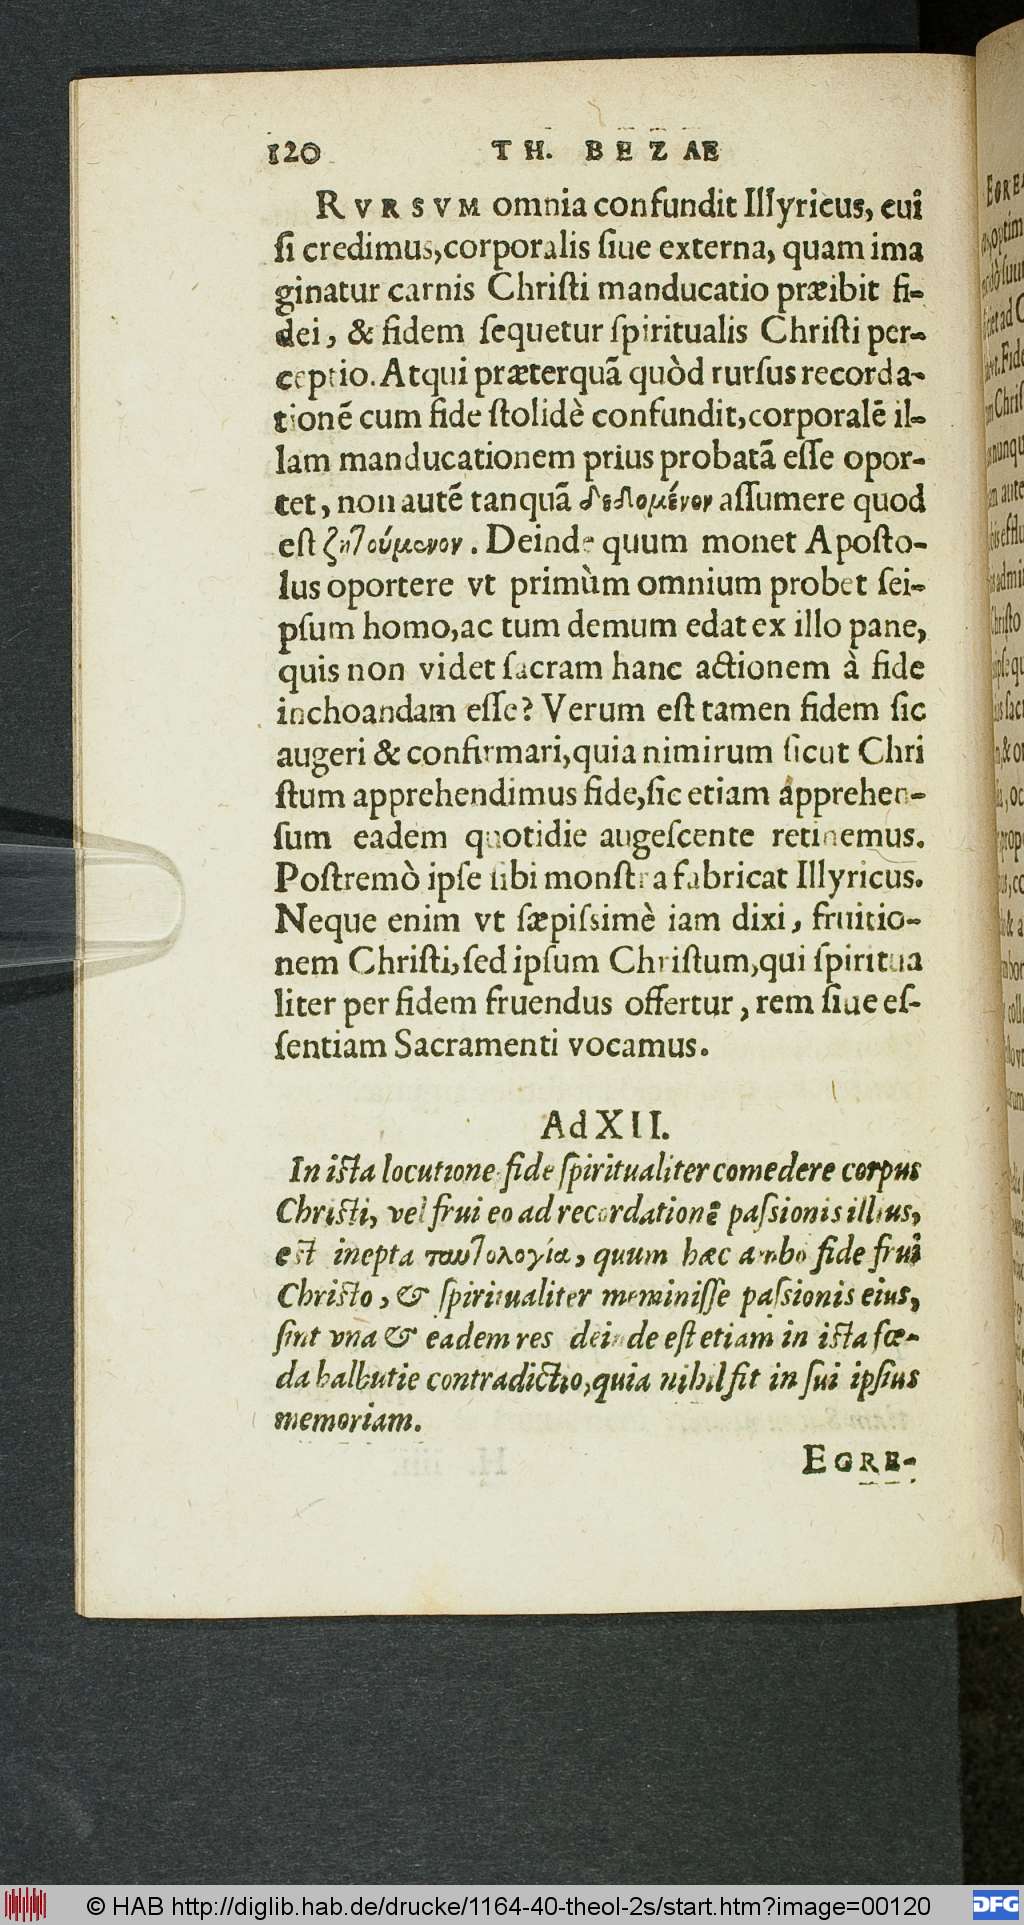 120 TH. BEZAE
RVRSVM omnia confundit Illyricus, cui
ſi credimus, corporalis ſiue externa, quam ima
ginatur carnis Chriſti manducatio præibit fi-
dei, & fidem ſequetur ſpiritualis Chriſti per-
ceptio. Atqui præterquã quòd rurſus recorda-
tionẽ cum fide ſtolidè confundit, corporalẽ il-
lam manducationem prius probatã eſſe opor-
tet, non autẽ tanquã δεδομένον aſſumere quod
eſt ζητούμενον. Deinde quum monet Apoſto-
lus oportere vt primùm omnium probet ſei-
pſum homo, ac tum demum edat ex illo pane,
quis non videt ſacram hanc actionem à fide
inchoandam eſſe? Verum eſt tamen fidem ſic
augeri & confirmari, quia nimirum ſicut Chri
ſtum apprehendimus fide, ſic etiam apprehen-
ſum eadem quotidie augeſcente retinemus.
Poſtremò ipſe ſibi monſtra fabricat Illyricus.
Neque enim vt ſæpiſsimè iam dixi, fruitio-
nem Chriſti, ſed ipſum Chriſtum, qui ſpiritua
liter per fidem fruendus offertur, rem ſiue eſ-
ſentiam Sacramenti vocamus.
Ad XII.
In iſta locutione fide ſpiritualiter comedere corpus
Chriſti, vel frui eo ad recordationẽ paſsionis illius,
eſt inepta ταυτολογία, quum hæc ambo fide frui
Chriſto, & ſpiritualiter meminiſſe paſsionis eius,
ſint vna & eadem res deinde eſt etiam in iſta fœ-
da balbutie contradictio, quia nihil fit in ſui ipſius
memoriam.
EGRE-
© HAB http://diglib.hab.de/drucke/1164-40-theol-2s/start.htm?image=00120
DFG